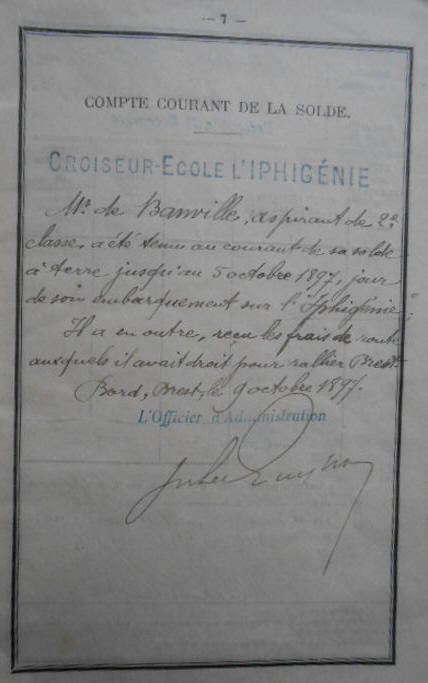 — 7 —
COMPTE COURANT DE LA SOLDE.
CROISEUR-ECOLE L'IPHIGÉNIE
Mr. de Banville, aspirant de 2e.
classe, a été tenu au courant de sa solde
à terre jusqu'au 5 octobre 1897, jour
de son embarquement sur l'"Iphigénie".
Il a en outre, reçu les frais de route
auxquels il avait droit pour rallier Brest.
Bord, Brest, le 9 octobre 1897.
L'Officier d'Administration